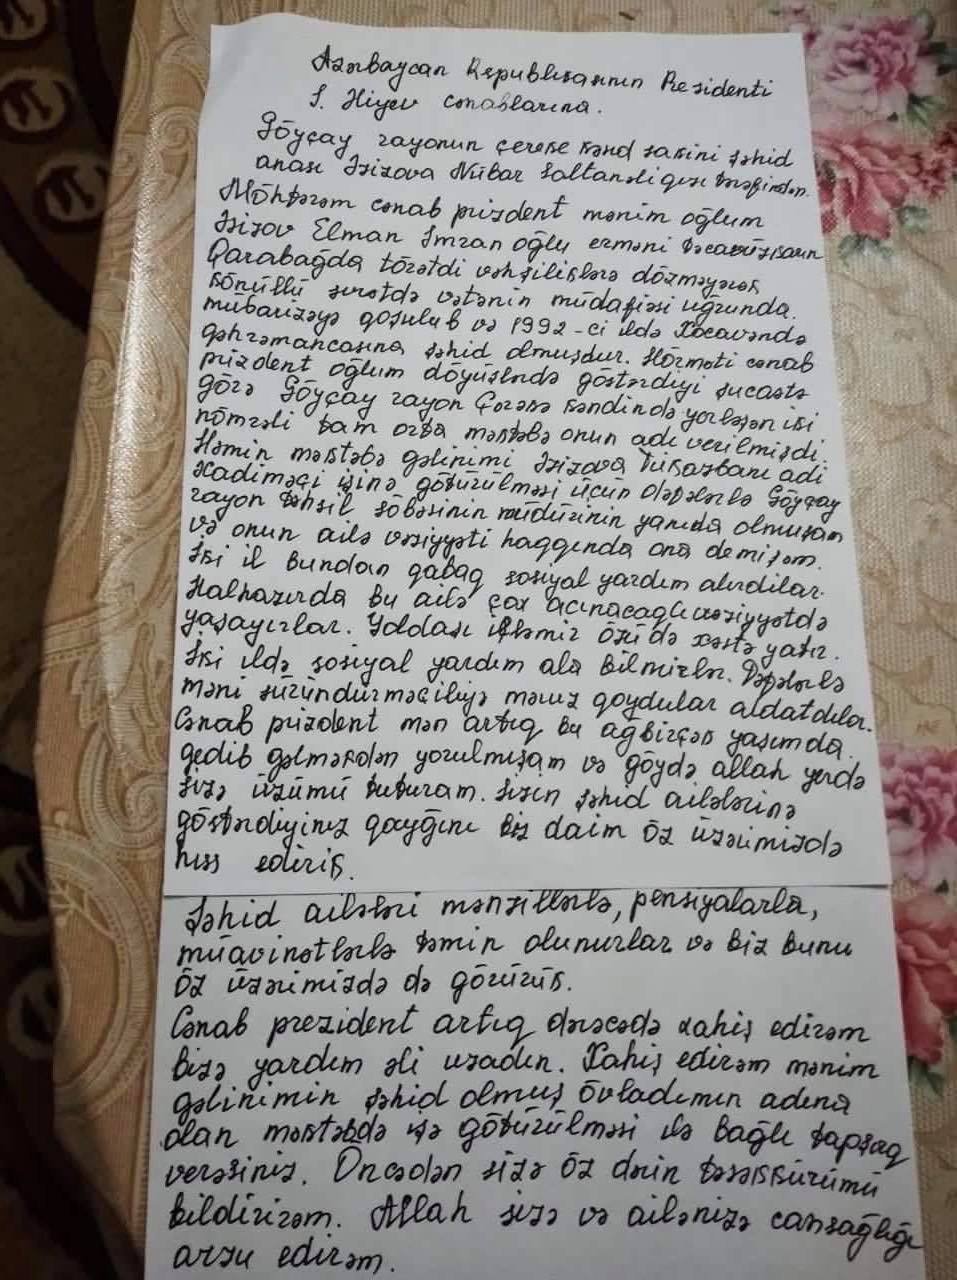 Azərbaycan Respublikasının Prezidenti
İ. Əliyev cənablarına.
Göyçay rayonun çereke kənd sakini şəhid
anası Əzizova Nübar Saltanəli qızı tərəfindən.
Möhtərəm cənab prizdent mənim oğlum
Əzizov Elman İmran oğlu erməni təcavüzkarın
Qarabağda törətdi vəhşiliklərə dözməyərək
könüllü surətdə vətənin müdafiəsi uğrunda.
mübarizəyə qoşulub və 1992-ci ildə Xocavəndə
qəhrəmancasına şəhid olmuşdur. Hörməti cənab
prizdent oğlum döyüşlərdə göstərdiyi şucaətə
görə Göyçay rayon Çərəkə kəndində yerləşən iki
nömrəli tam orta məktəbə onun adı verilmişdi.
Həmin məktəbə gəlinimi Əzizova Türkazbanı adi
xadiməçi işinə götürülməsi üçün dəfələrlə Göyçay
rayon təhsil şöbəsinin müdürinin yanıda olmuşam
və onun ailə vəziyyəti haqqında ona demişəm.
İki il bundan qabaq sosiyal yardım alırdılar.
Halhazırda bu ailə çox acınacaqlı vəziyyətdə
yaşayırlar. Yoldaşı işləmir özü də xəstə yatır.
İki ildə sosiyal yardım ala bilmirlər. Dəfələrlə
məni süründürməçiliyə məruz qoydular aldatdılar.
Cənab prizdent mən artıq bu ağbirçək yaşımda
gedib gəlməkdən yorulmuşam və göydə allah yerdə
sizə üzümü tuturam. Sizin şəhid ailələrinə
göstərdiyiniz qayğını biz daim öz üzərimizdə
hiss edirik.
Şəhid ailələri mənzillərlə, pensiyalarla,
müavinətlərlə təmin olunurlar və biz bunu
öz üzərimizdə də görürük.
Cənab prezident artıq dərəcədə xahiş edirəm
bizə yardım əli uzadın. Xahiş edirəm mənim
gəlinimin şəhid olmuş övladımın adına
olan məktəbdə işə götürülməsi ilə bağlı tapşırıq
verəsiniz. Öncədən sizə öz dərin təşəkkürümü
bildirirəm. Allah sizə və ailənizə cansağlığı
arzu edirəm.